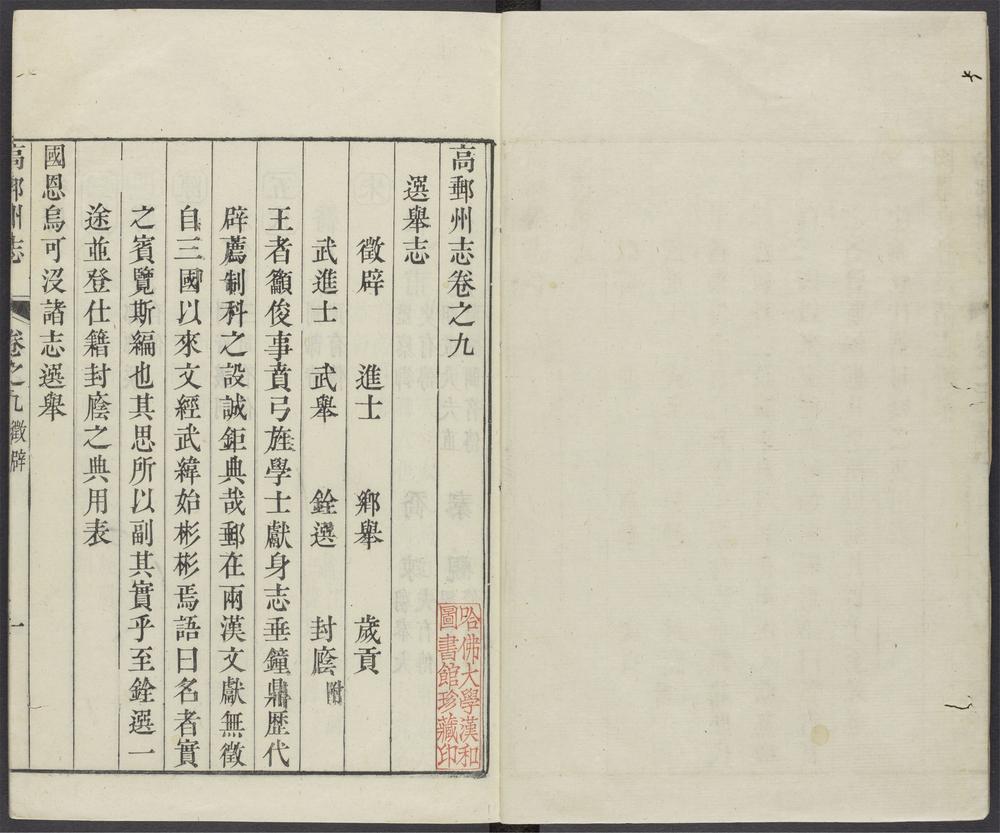 高郵州志卷之九
選舉志
徵辟 進士 鄉舉 歲貢
武進士 武舉 銓選 封廕附
王者籲俊事賁弓旌學士獻身志垂鐘鼎歷代
辟薦制科之設誠鉅典哉郵在兩漢文獻無徵
自三國以來文經武緯始彬彬焉語曰名者實
之賓覽斯編也其思所以副其實乎至銓選一
途並登仕籍封廕之典用表
國恩烏可沒諸志選舉
高郵州志 卷之九 徵辟 一
哈佛大學漢和
圖書館珍藏印